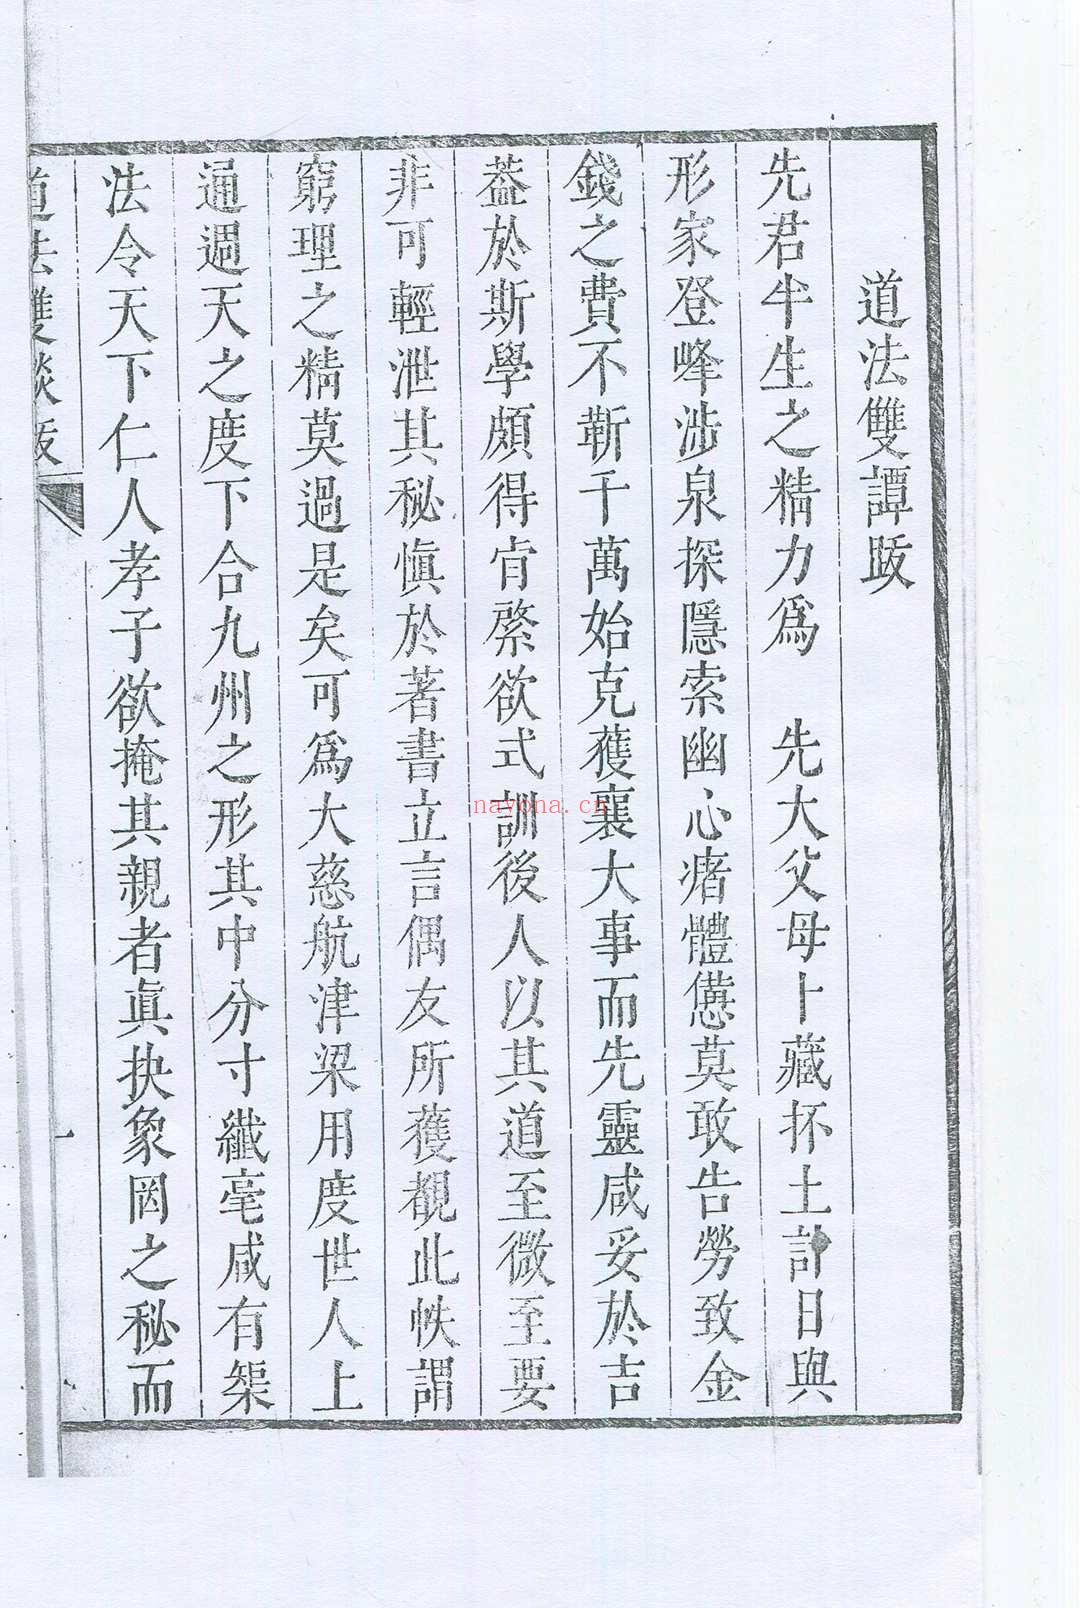 道法雙譚䟦
先君半生之精力爲　先大父母卜藏抔土計日與
形家登峰涉泉探隱索幽心瘏體憊莫敢告勞致金
錢之費不靳千萬始克蒦襄大事而先靈咸妥於吉
葢於斯學頗得肯綮欲式訓後人以其道至微至要
非可輕泄其秘慎於著書立言偶友所獲覩此帙謂
窮理之精莫過是矣可爲大慈航津梁用度世人上
通週天之度下合九州之形其中分寸纖毫咸有榘
法令天下仁人孝子欲掩其親者眞抉象罔之秘而
道法雙談䟦
一
nayona.cn